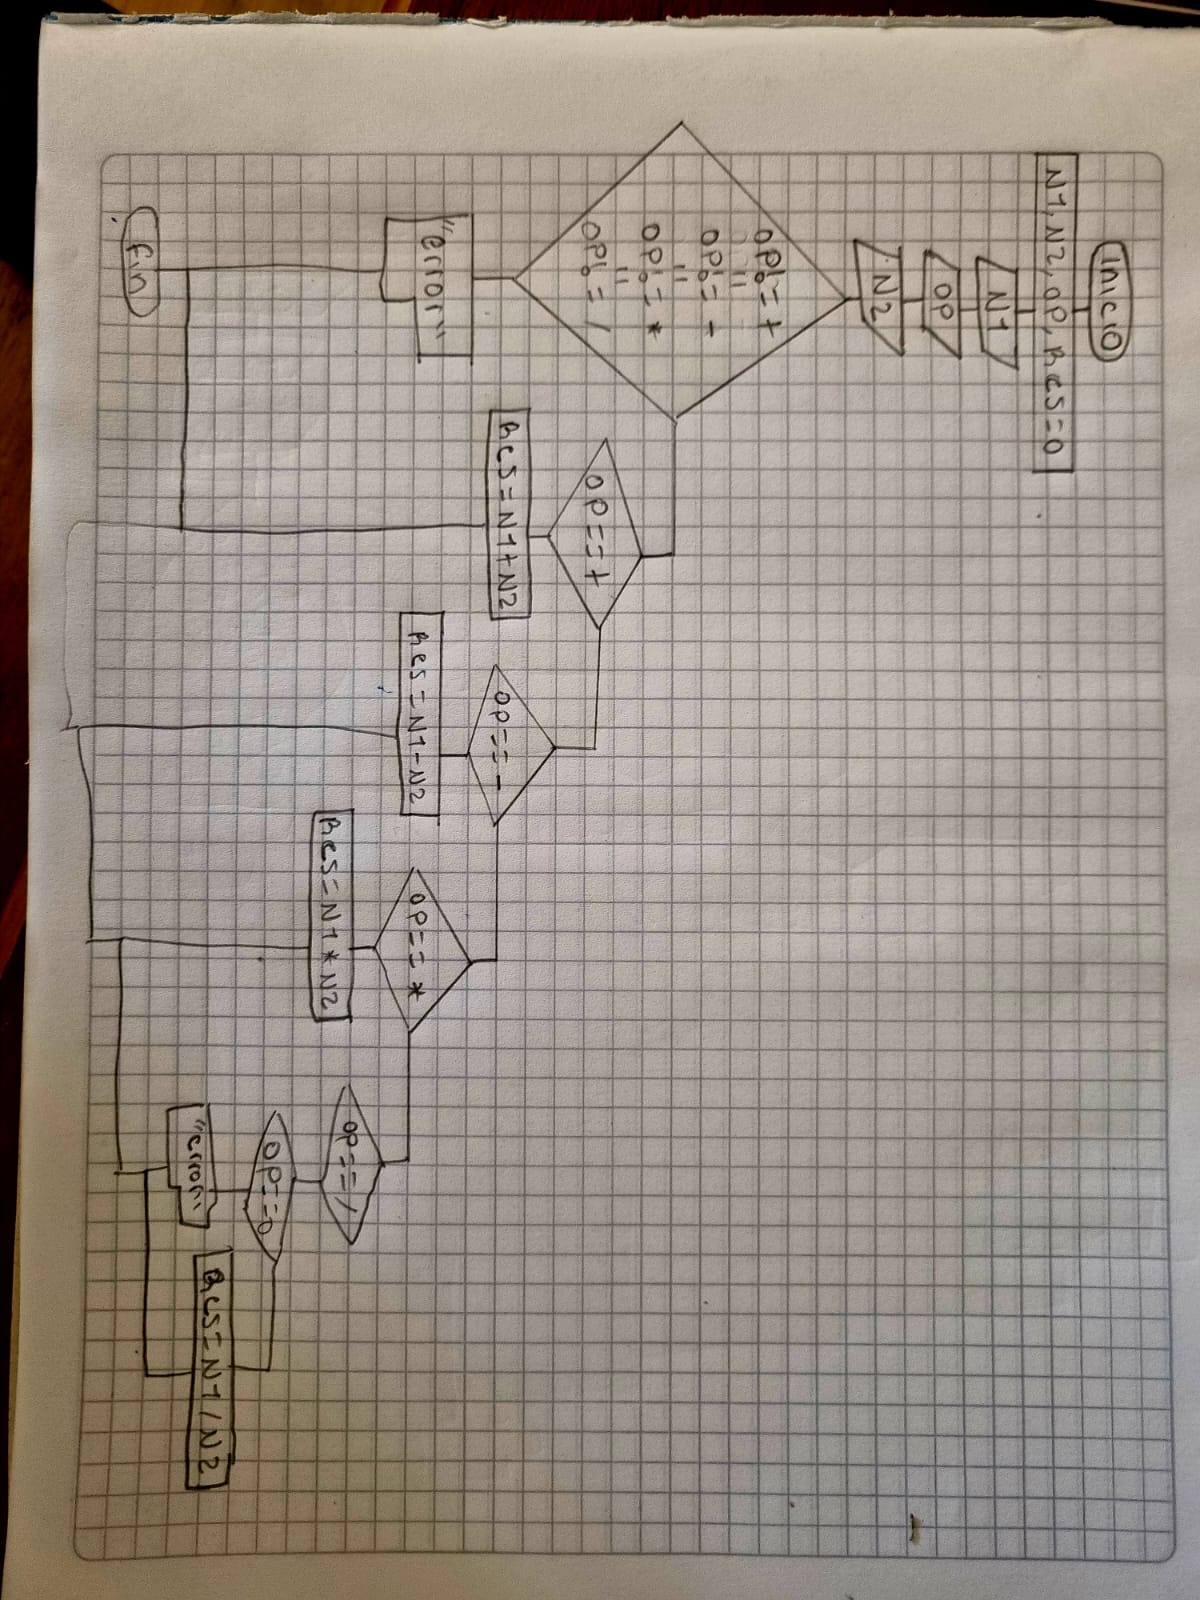 Inicio
N1, N2, OP, Res=0
N1
OP
N2
OP!=+
"
OP!=-
"
OP!=*
"
OP!=/
"error"
OP==+
Res=N1+N2
OP==-
Res=N1-N2
OP==*
Res=N1*N2
OP==/
OP==0
"error"
Res=N1/N2
fin